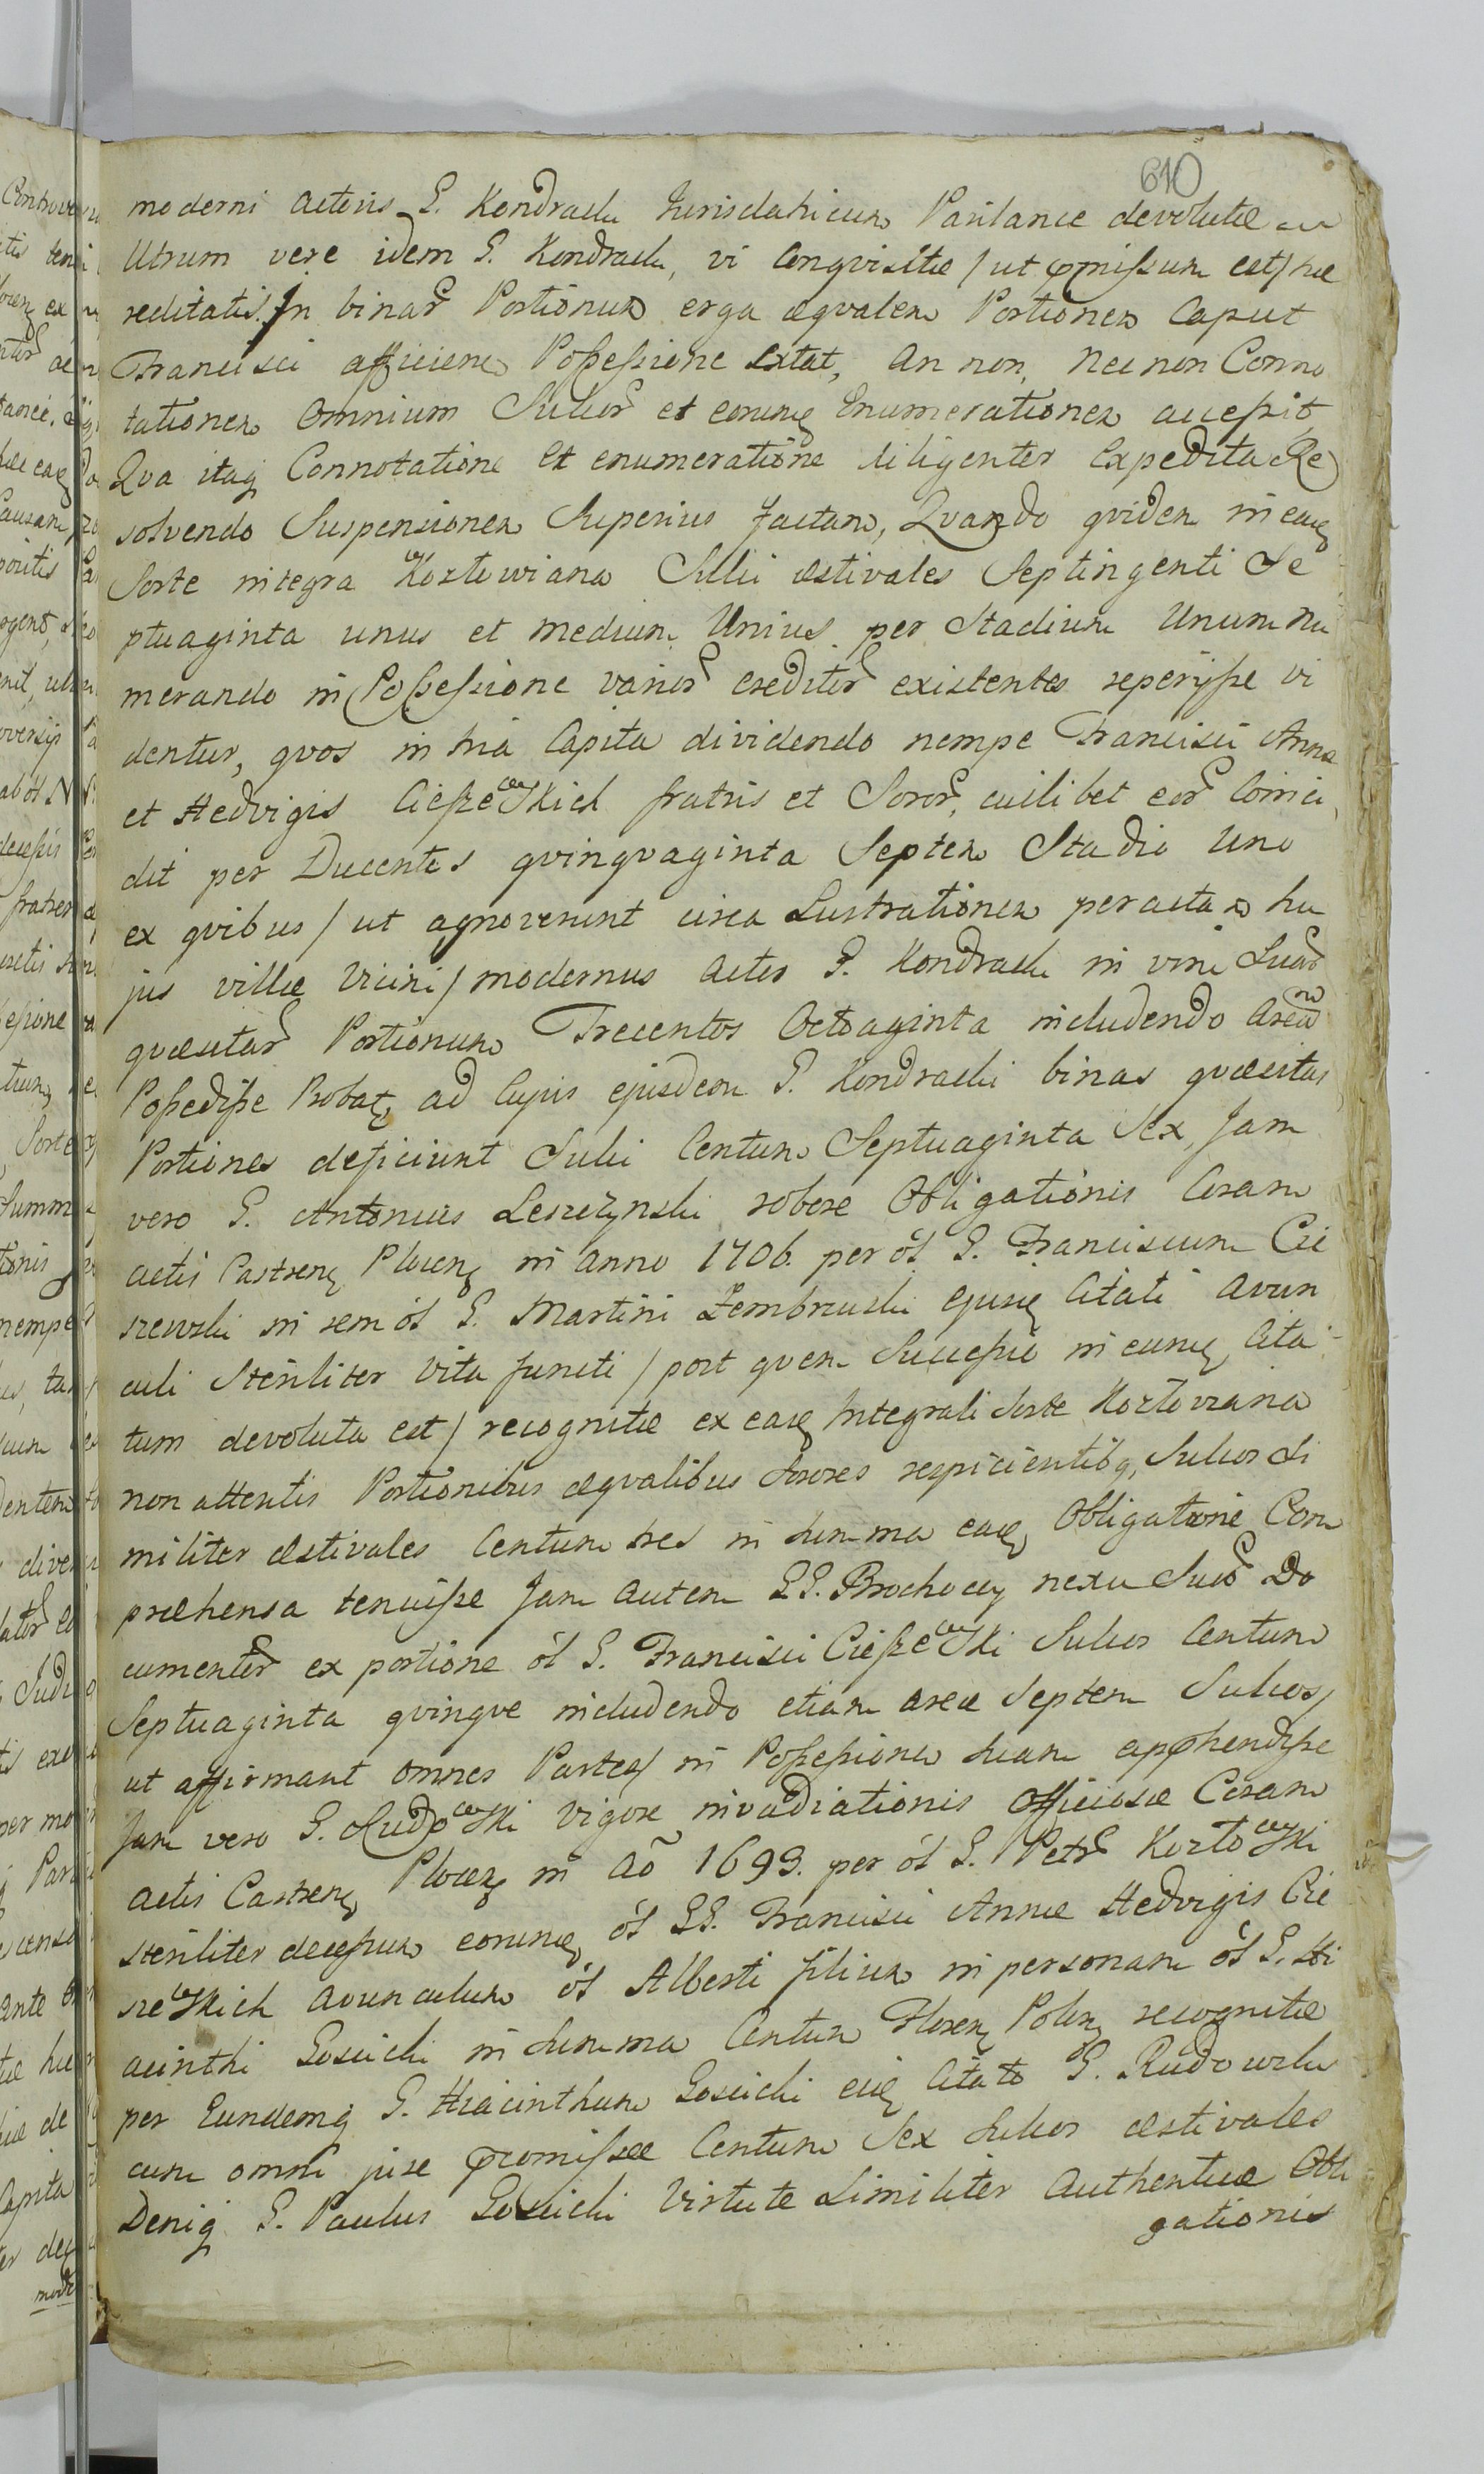 610
moderni actoris G. Kondracki Jurisdaticum Parilance devolutæ
Utrum vere idem G. Kondracki, vi Conqvisitæ / ut præmissum est / hæ
reditatis In binar Portionum erga æqvalem Portionem Caput
Francisci afficiens Possessione Extat, an non, necnon Conno
tationem Omnium Sulcor et eorumq Enumerationem accessit
Qva itaq Connotatione et enumeratione diligenter Expedita Re
solvendo Suspensionem Superius factam, Qvando qvidem in eaq
Sorte integra Kozłowiana Sulci æstivales Septingenti Se
ptuaginta unus et medium Unius per Stadium Unum nu
merando in Possessione varior creditor existentes reperijsse vi
dentur, qvos in tria Capita dividendo nempe Francisci Annæ
et Hedvigis Cieszewskich fratris et Soror, cuilibet eor Coinci
dit per Ducentos qvinqvaginta Septem Stadio Uno
ex qvibus / ut agnoverunt circa Lustrationem peractam hu
jus villæ Vicini / modernus Actor G. Kondracki in vim Suar
qvæsitar Portionum Trecentos Octoaginta includendo Aream
Possedisse Probat, ad Cujus ejusdem G. Kondracki binas qvæsitas
Portiones deficiunt Sulci Centum Septuaginta Sex, Jam
vero G. Antonius Leszczynski robore Obligationis Coram
actis Castren Plocen in Anno 1706. per ol G. Franciscum Cie
szewski in rem ol G. Martini Zembrzuski ejusq Citati Avun
culi Steriliter Vita functi / post qvem Successio in eumq Cita
tum devoluta est / recognitæ ex eaq Integrali Sorte Kozłoviana
non attentis Portionibus æqvalibus Sorores respicientibq, Sulcos Si
militer æstivales Centum tres in Summa eaq Obligatione Com
præhensa tenuisse Jam autem GG. Brochoccy nexu Suor Do
cumentor ex portione ol G. Francisci Cieszewski Sulcos Centum
Septuaginta qvinqve includendo etiam areæ Septem Sulcos /
ut affirmant omnes Partes / in Possessionem suam apprehendisse
Jam vero G. Rudowski Vigore invadiationis Officiosæ Coram
Actis Castren Plocen in Ao 1693. per ol G. Petr Kozłowski
steriliter decessum eorumq ol GG. Francisci Annæ Hedvigis Cie
szewskich Avunculum ol Alberti filium in personam ol G. Hi
acinthi Gosicki in Summa Centum Floren Polon recognitæ
per Eundemq G. Hiacinthum Gosicki eiq Citato G. Rudowski
cum omni jure præmissæ Centum Sex Sulcos æstivales
Deniq G. Paulus Gosicki Virtute Similiter Authenticæ Obli
gationis